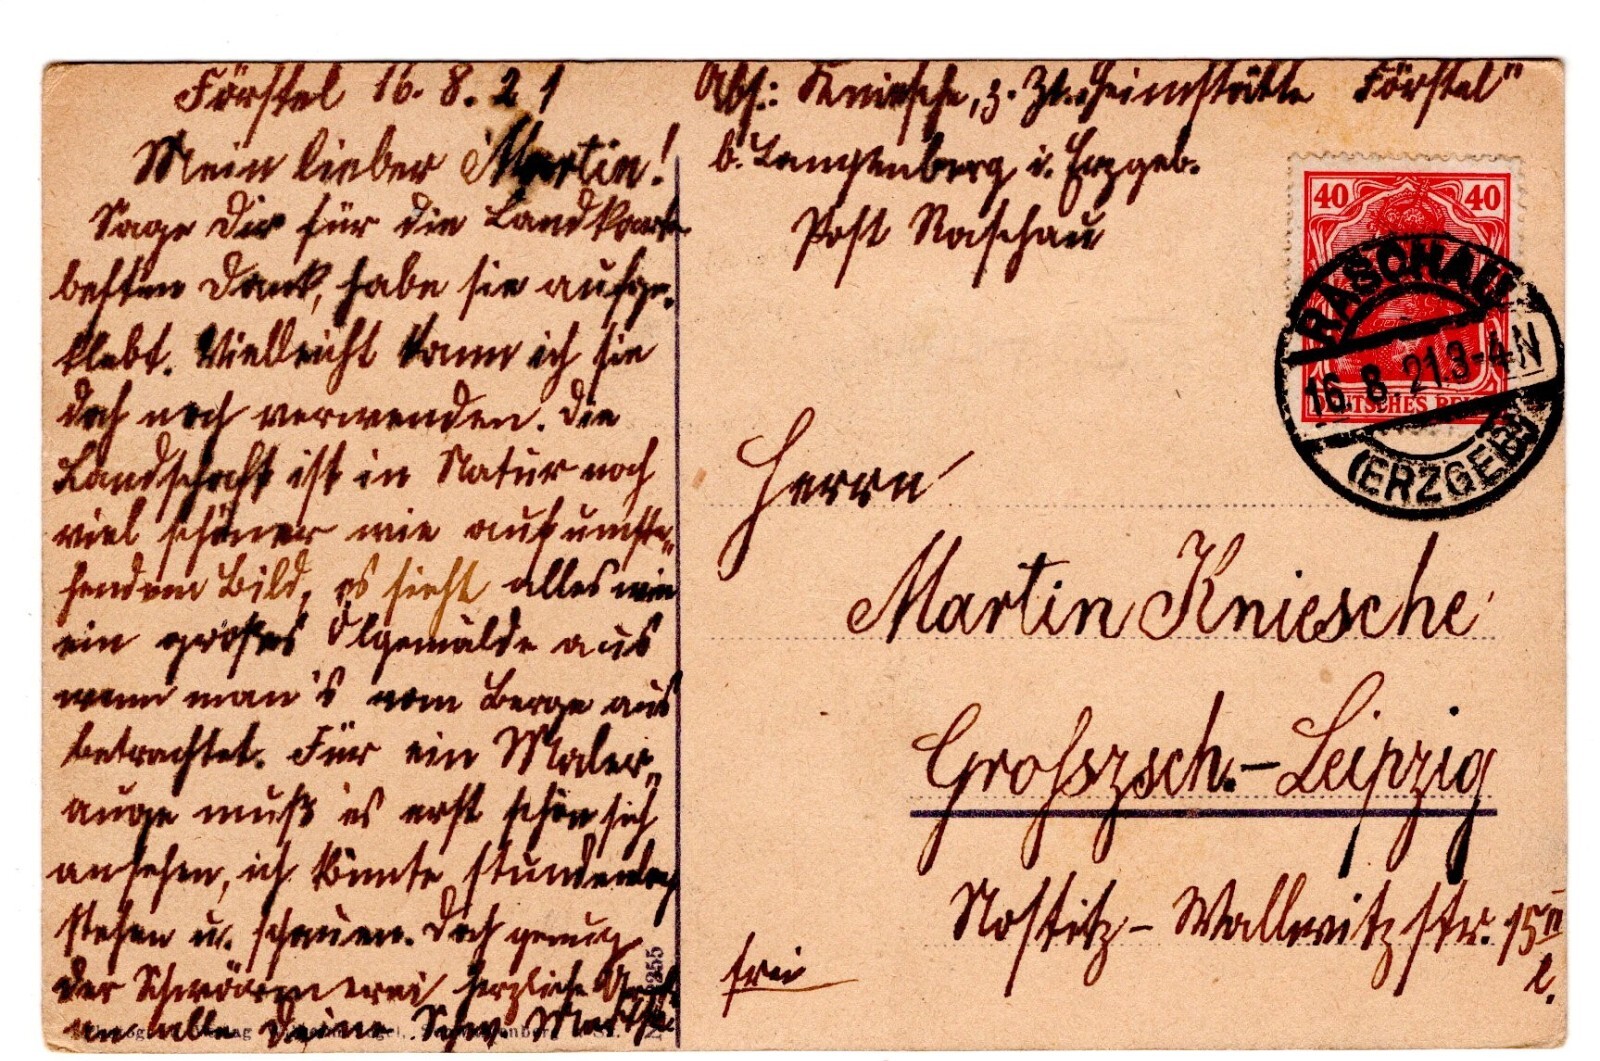 Förstel 16. 8. 21
Mein lieber Martin!
Sage Dir für die Landkarte
besten Dank, habe sie aufge-
klebt. Vielleicht kann ich sie
doch noch verwenden. Die
Landschaft ist in Natur noch
viel schöner wie auf umste-
hendem Bild, es sieht alles wie
ein großes Ölgemälde aus
wenn man's vom Berge aus
betrachtet. Für ein Maler-
auge muß es erst schön sich
ansehen, ich könnte stundenlang
stehen u. schauen. Doch genug
der Schwärmerei, herzliche Grüße
an alle Deine Schw. Martha
Abs.: Kniesche, z. Zt. "Heimstätte Förstel"
b. Langenberg i. Erzgeb.
Post Raschau
40 40
DEUTSCHES REICH
RASCHAU
16. 8. 21. 3-4 N
(ERZGEB)
Herrn
Martin Kniesche
Grosszsch.-Leipzig
Nostitz-Wallwitzstr. 15 II
l.
frei